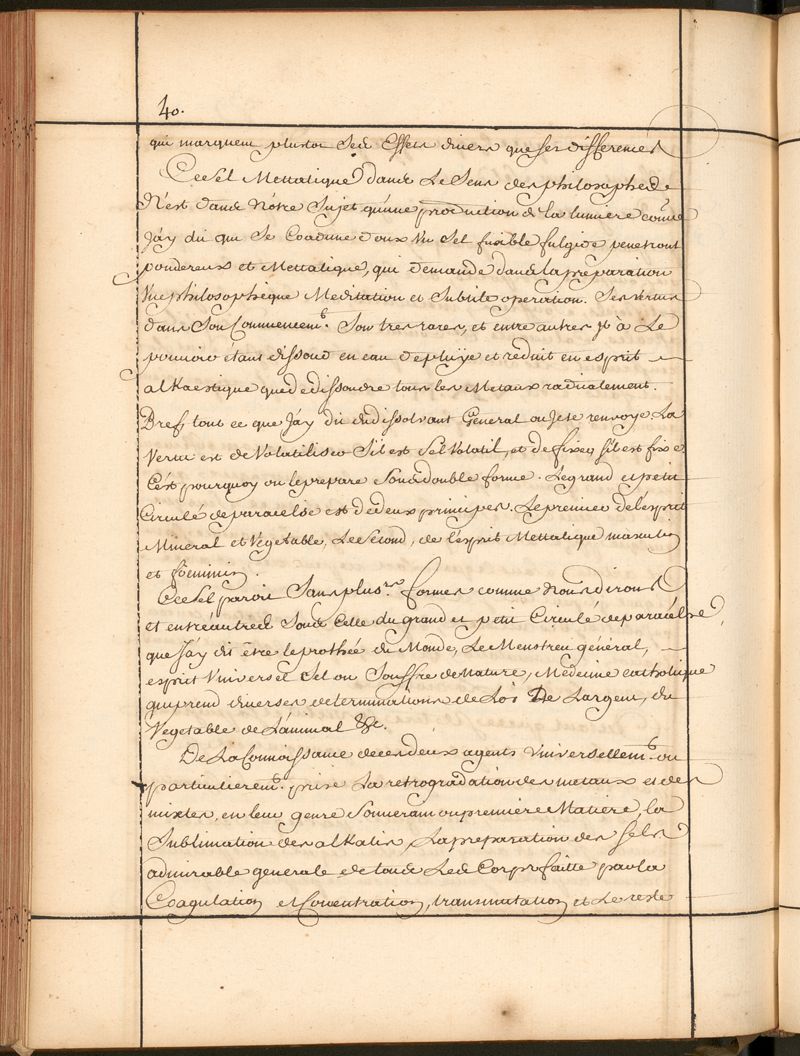 40.
qui marquent plustot Ses Effets divers que ses differences
Ce Sel Mettatique dans Le Sens des philosophes
N'est dans Nôtre Sujet qu'une production de la lumiere come
Jáy dit qui Se Coadune dans Un Sel fusible fulgide penetrant
pondereux et Mettalique, qui demande dans la preparation
Une philosophique Meditation et Subtile operation. Ses vertus
dans Son Commencemt. Son tres rares, et entre autres jl à Le
pouvoir étant dissout en eau depluÿe et reduit en esprit
alKaestique que de dissoudre tous les Metaux radicalement.
Bref tout ce que Jáy dit du dissolvant General ou Je te renvoye La
Vertu est de Volatiliser S'il est Sel Volatil, et de fixer s'il est fixe
C'est pourquoy on le prepare Sous double forme. Le grand et petit
Circulé de paracelse est de deux principes. Le premier de l'esprit
Mineral et Vegetable, Le Second, de l'esprit Mettatique masculin
et foeminin.
Ce Sel paroit Sans plusrs formes comme Nous dirons
et entréautres Sous Celle du grand et petit Circulé de paracelse,
que Jáy dit être le prothée du Monde, Le Menstreu général,
esprit Universel Sel ou Souffre de Nature, Medecine catholique
qui prend diverses determinations de L'or De Largent, du
Vegetable de L'animal &c.
De La Connoissance de ces deux agents Universellemt. ou
particulieremt. prise La retrogradation des metaux et des
mixtes, en leur genre Souverain ou premiere Matiere, la
Sublimation des alKalis, La preparation des sels
admirable generale de tous Les Corps faitte par la
Coagulation et Concentration, transmutation et Le reste